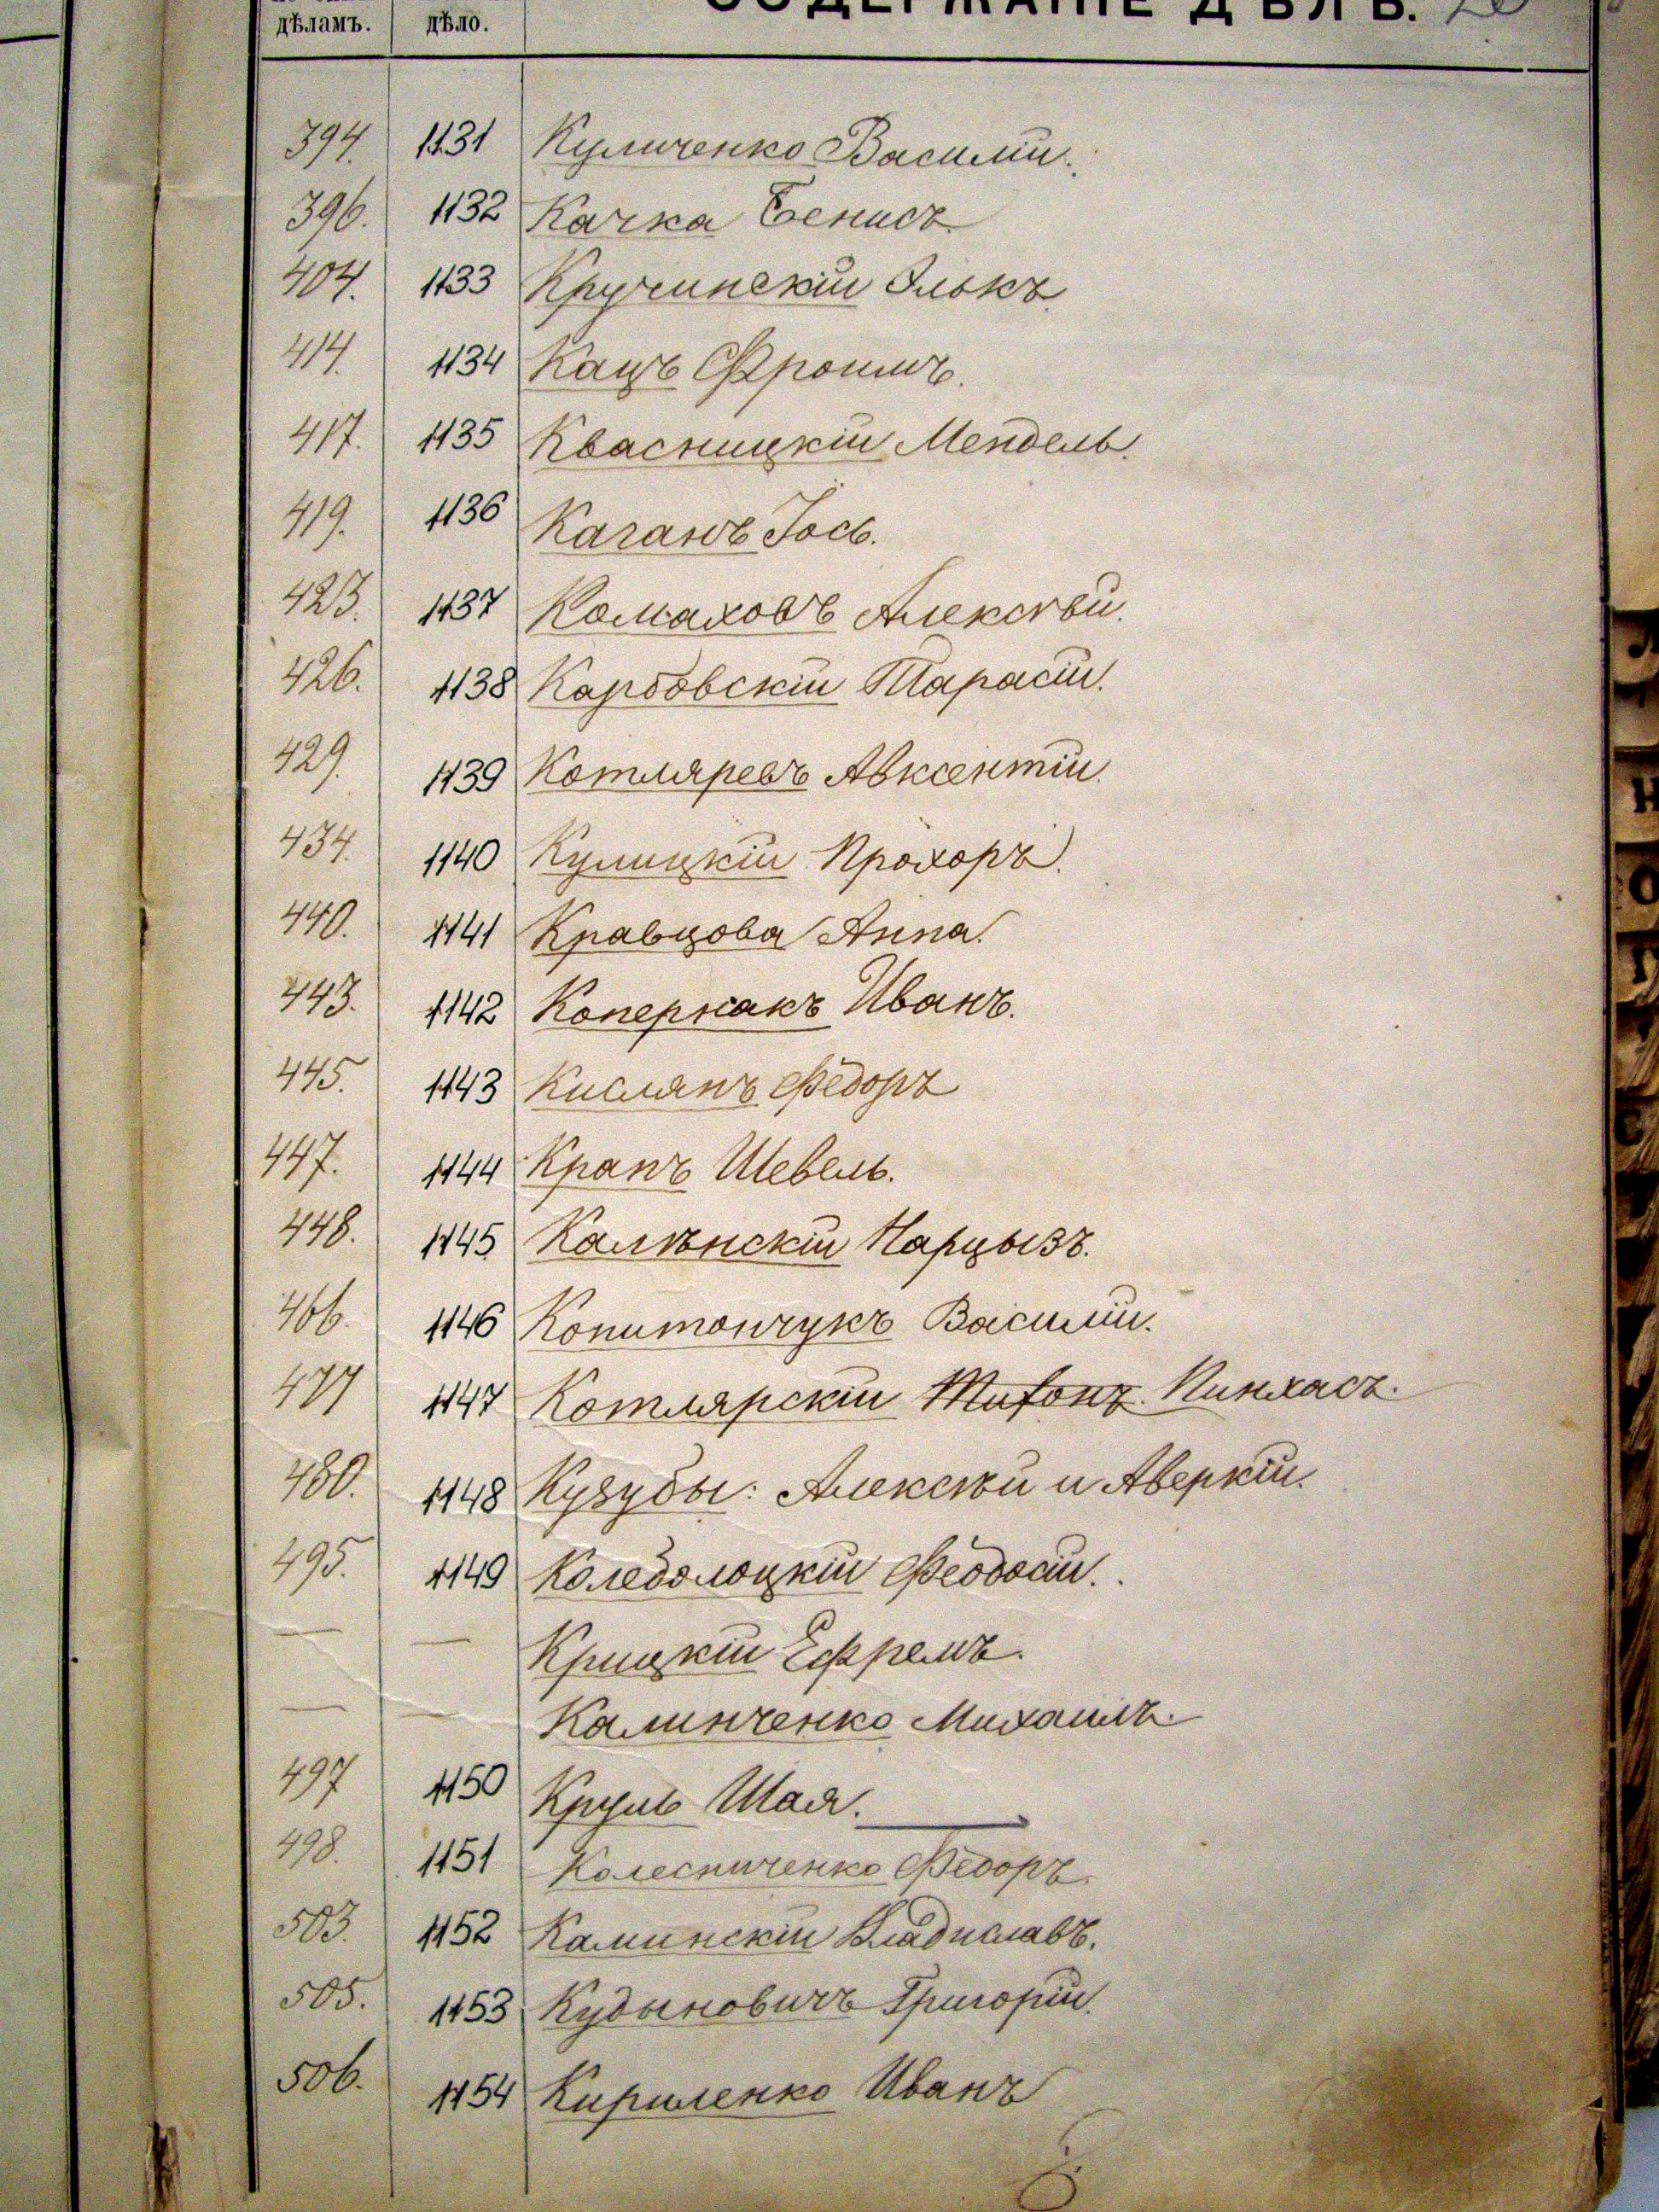 дѣламъ. дѣло. СОДЕРЖАНІЕ ДѢЛЪ.
394. 1131 Куличенко Василій.
396. 1132 Качка Бенисъ.
404. 1133 Кручинскій Элькъ.
414. 1134 Кацъ Фроимъ.
417. 1135 Квасницкій Мендель.
419. 1136 Каганъ Іось.
423. 1137 Комаховъ Алексѣй.
426. 1138 Карбовскій Тарасій.
429. 1139 Котляревъ Авксентій.
434. 1140 Кулицкій Прохоръ.
440. 1141 Кравцова Анна.
443. 1142 Копернакъ Иванъ.
445. 1143 Кислянъ Федоръ
447. 1144 Кранъ Шевель.
448. 1145 Калѣнскій Нарцызъ.
466. 1146 Копитончукъ Василій.
477 1147 Котлярскій Пинхасъ.
480. 1148 Кузубы: Алексѣй и Аверкій.
495. 1149 Коледолоцкій Феодосій.
— — Крицкій Ефремъ.
— — Калинченко Михаилъ.
497 1150 Круль Шая.
498. 1151 Колесниченко Федоръ.
503. 1152 Каминскій Владиславъ.
505. 1153 Кудыновичъ Григорій.
506. 1154 Кириленко Иванъ